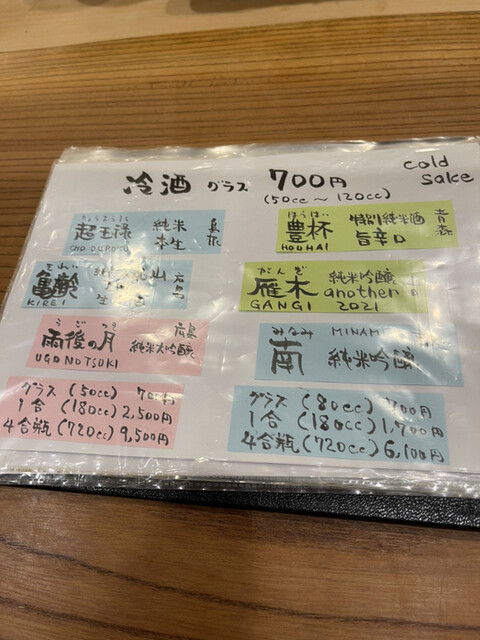 冷酒 グラス 700円
(50cc～120cc)
cold
sake
ちょうおうろく
超王禄 純米
本生
CHO OUROKU
きれい
亀齢
KIREI 生
うごのつき
雨後の月 広島
純米大吟醸
UGONOTSUKI
グラス (50cc) 700円
1合 (180cc) 2,500円
4合瓶(720cc) 9,500円
ほうはい
豊杯 特別純米酒 青森
旨辛口
HOUHAI
がんぎ
雁木 純米吟醸
another
GANGI 2021
みなみ MINAMI
南 純米吟醸
グラス (80cc) 700円
1合 (180cc) 1,700円
4合瓶(720cc) 6,100円